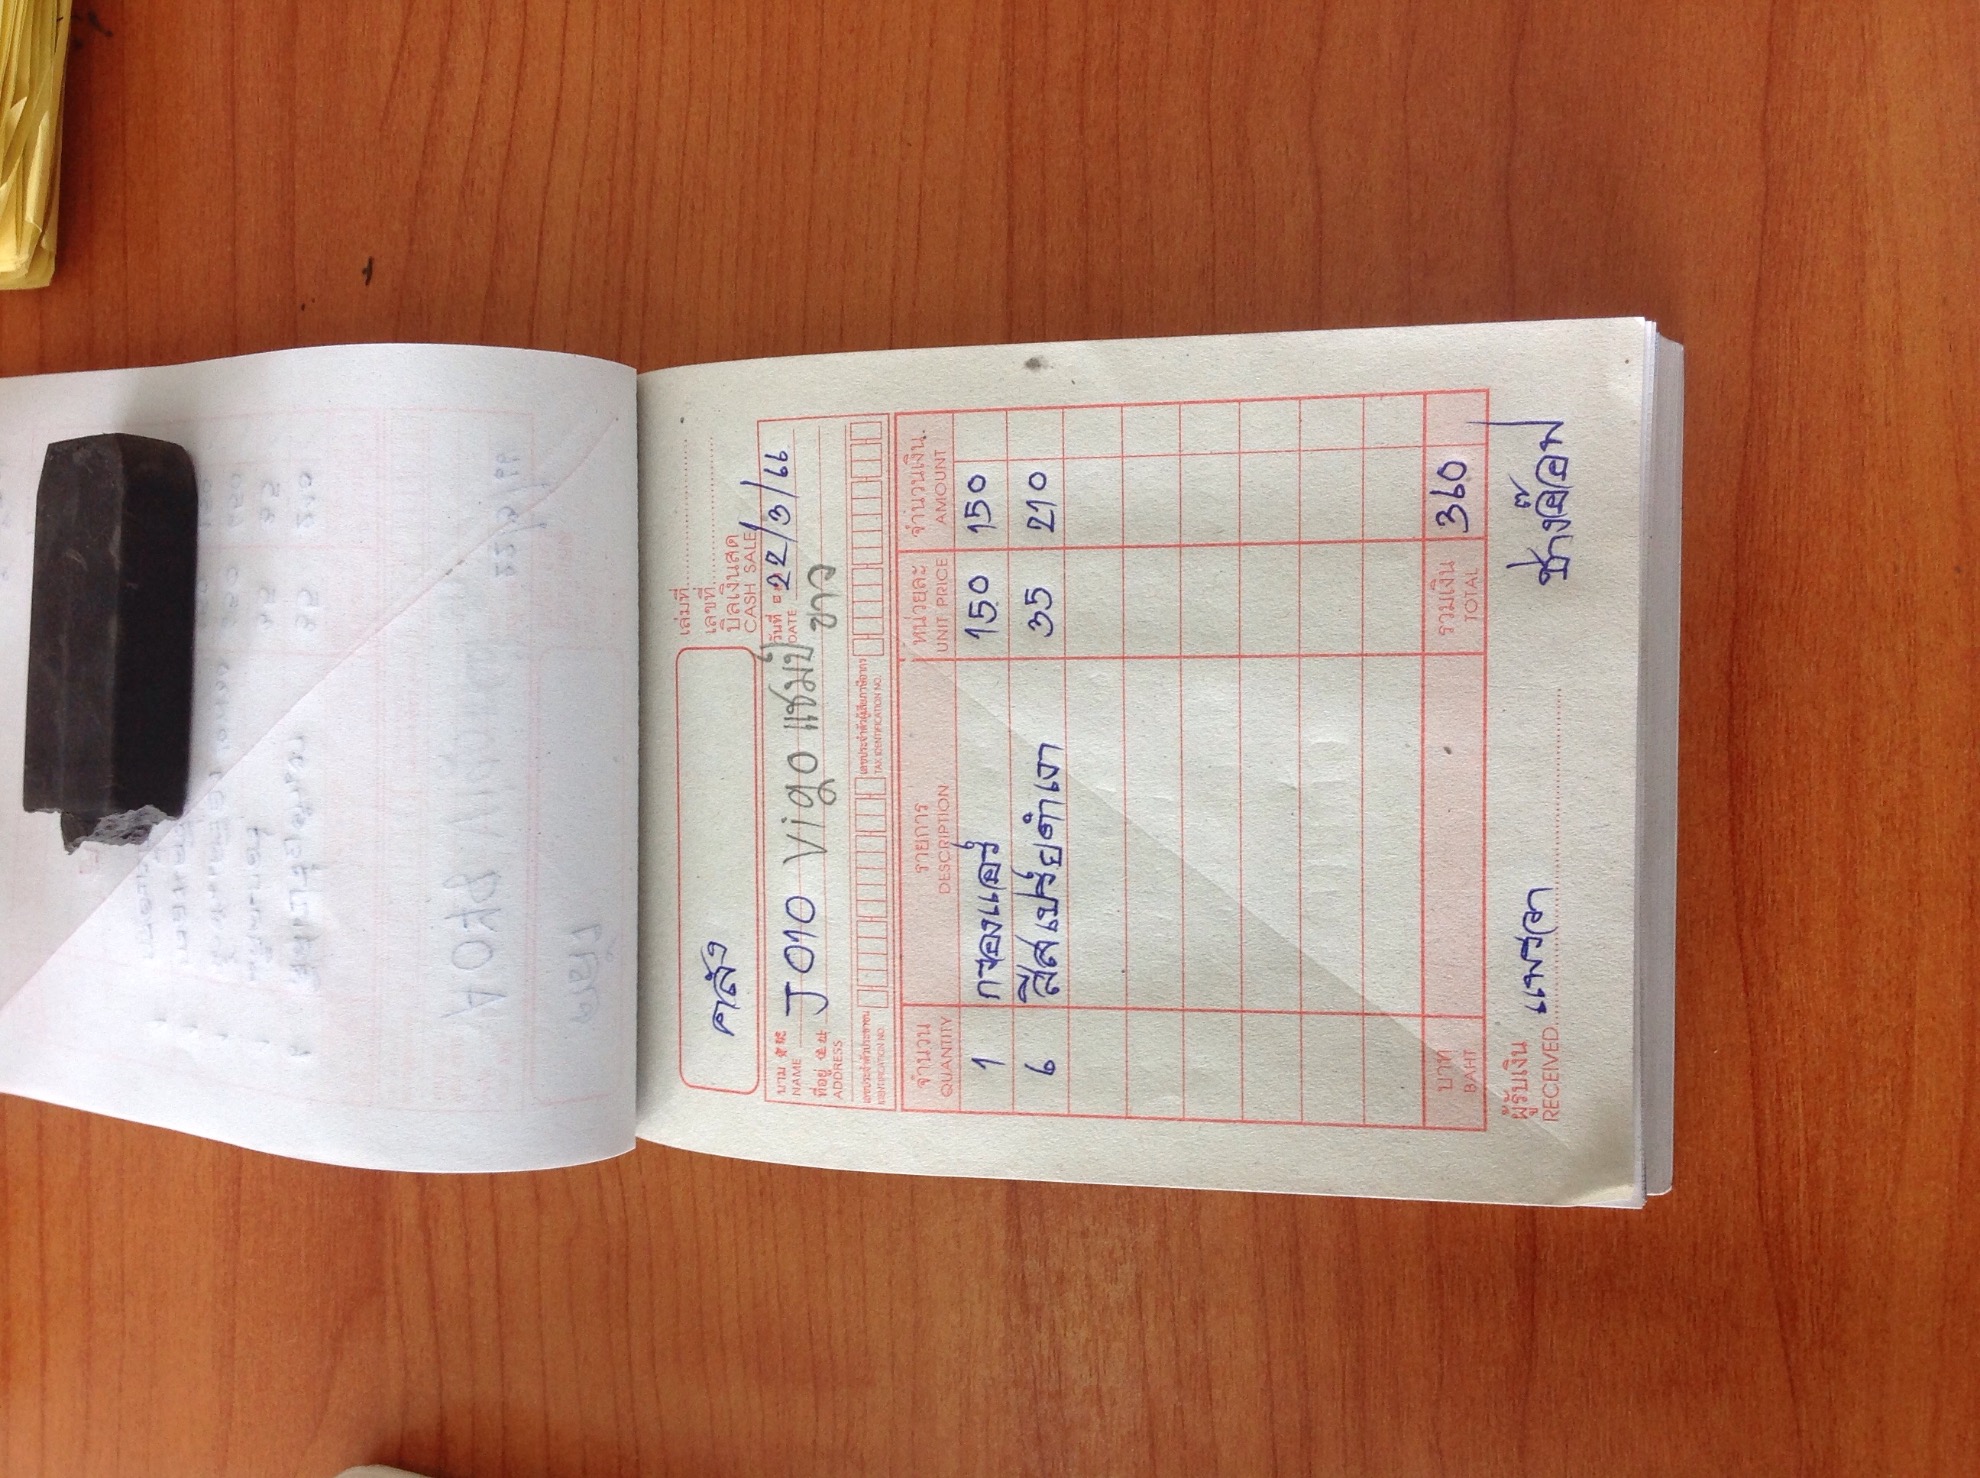 เล่มที่
เลขที่
บิลเงินสด
CASH SALE
คลัง
วันที่ 22/3/66
DATE
นาม J010 Vigo แชมป์
NAME
ขาว
ที่อยู่
ADDRESS
เลขประจำตัวประชาชน เลขประจำตัวผู้เสียภาษีอากร
IDENTIFICATION NO. TAX IDENTIFICATION NO.
จำนวน รายการ หน่วยละ จำนวนเงิน
QUANTITY DESCRIPTION UNIT PRICE AMOUNT
1 กรองแอร์ 150 150
6 สีสเปรย์ดำเงา 35 210
บาท รวมเงิน 360
BAHT TOTAL
ผู้รับเงิน แพรวา ช่างอ๊อฟ
RECEIVED